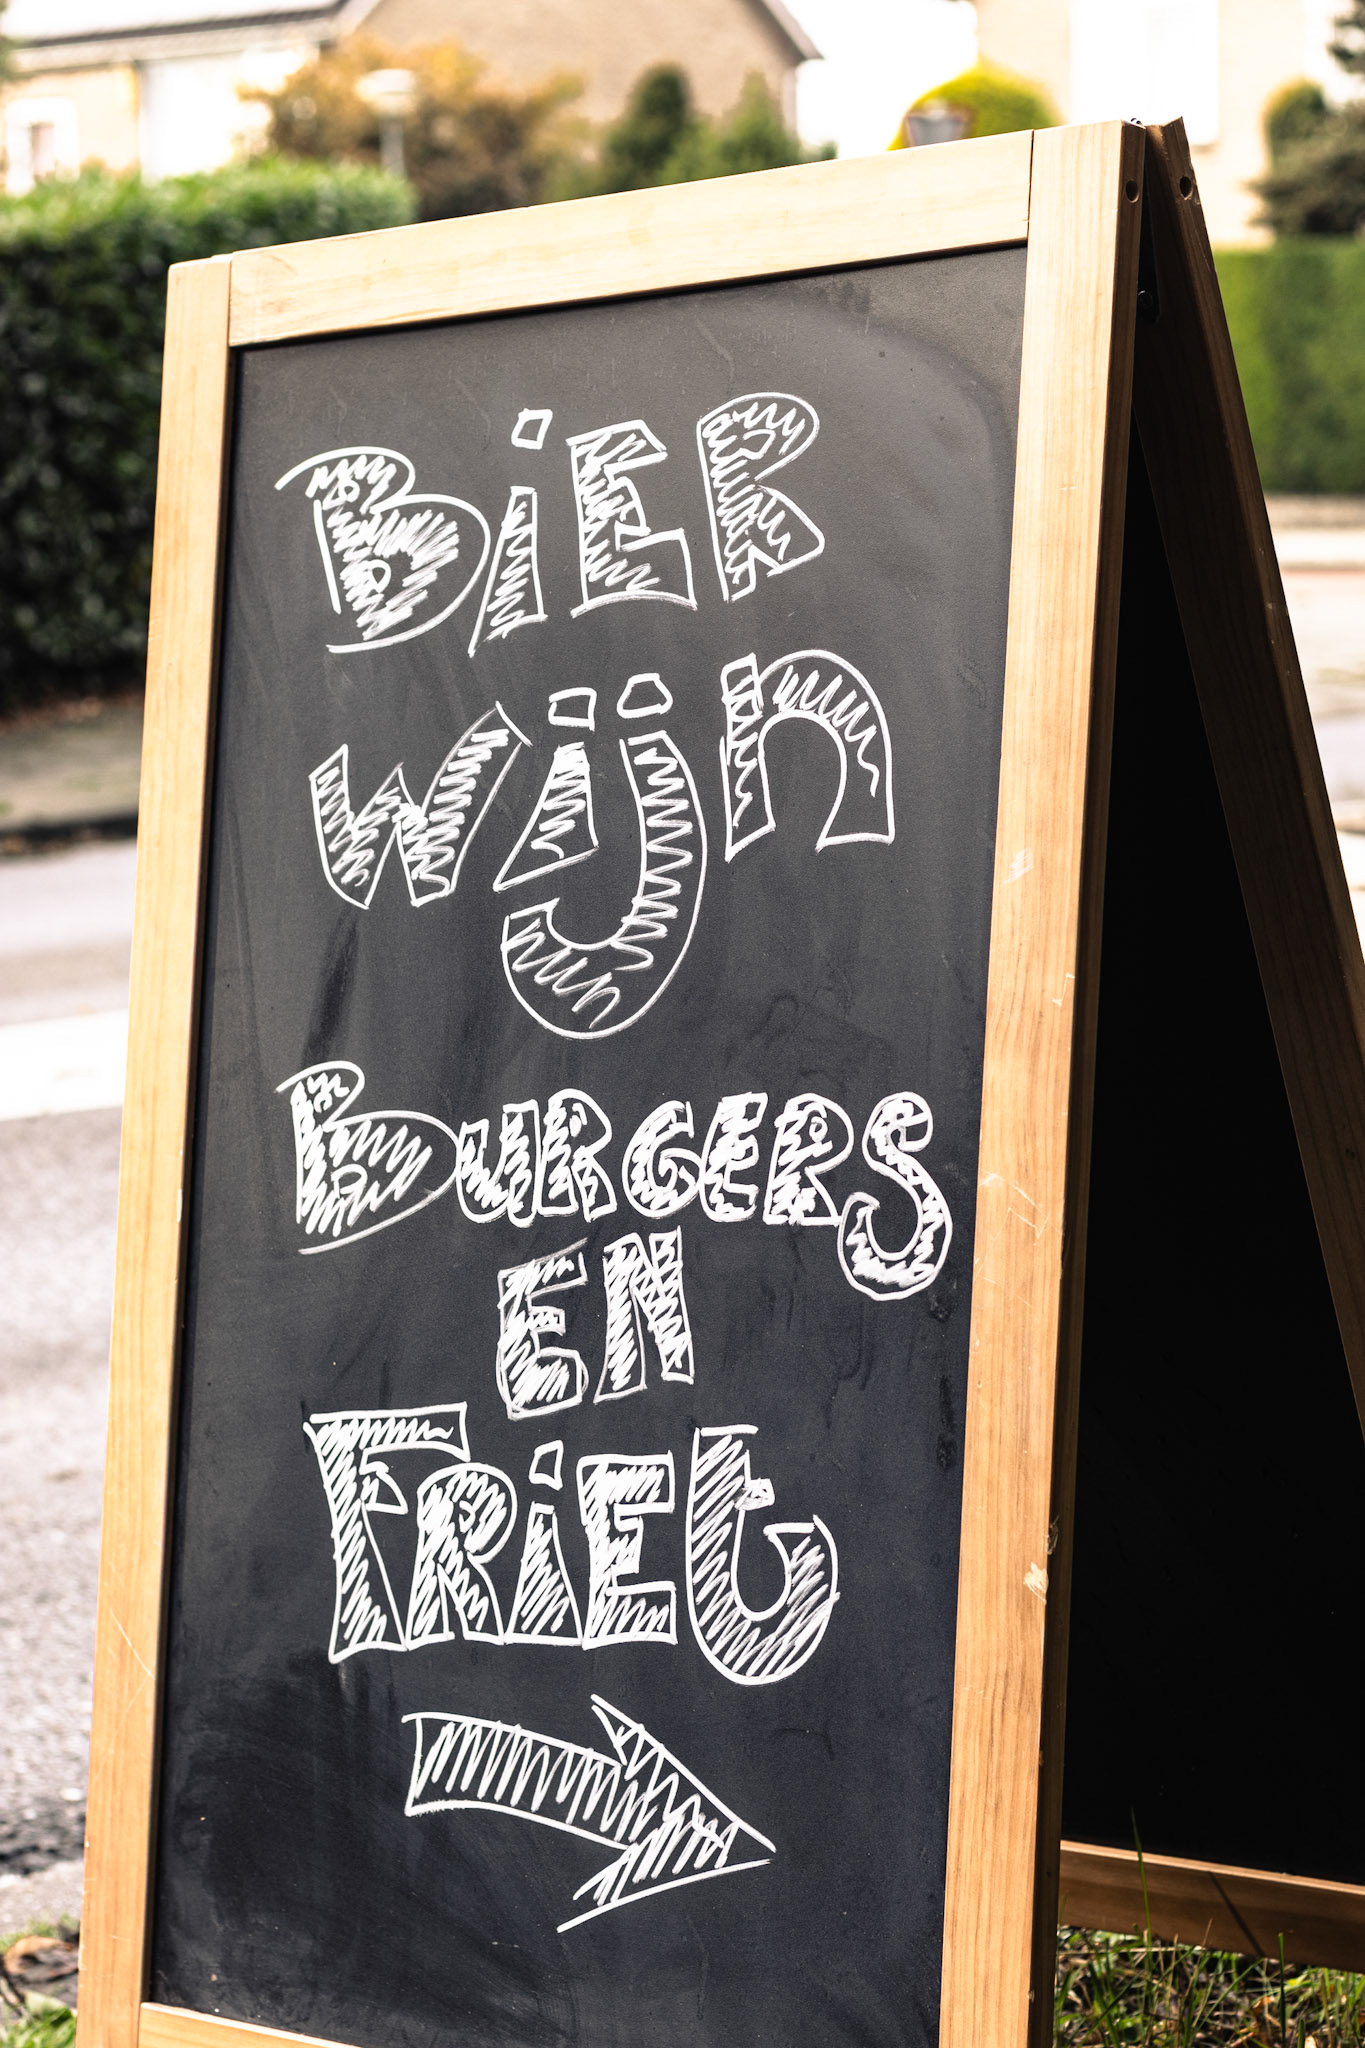 BiER
wijn
BURGERS
EN
FRiEt